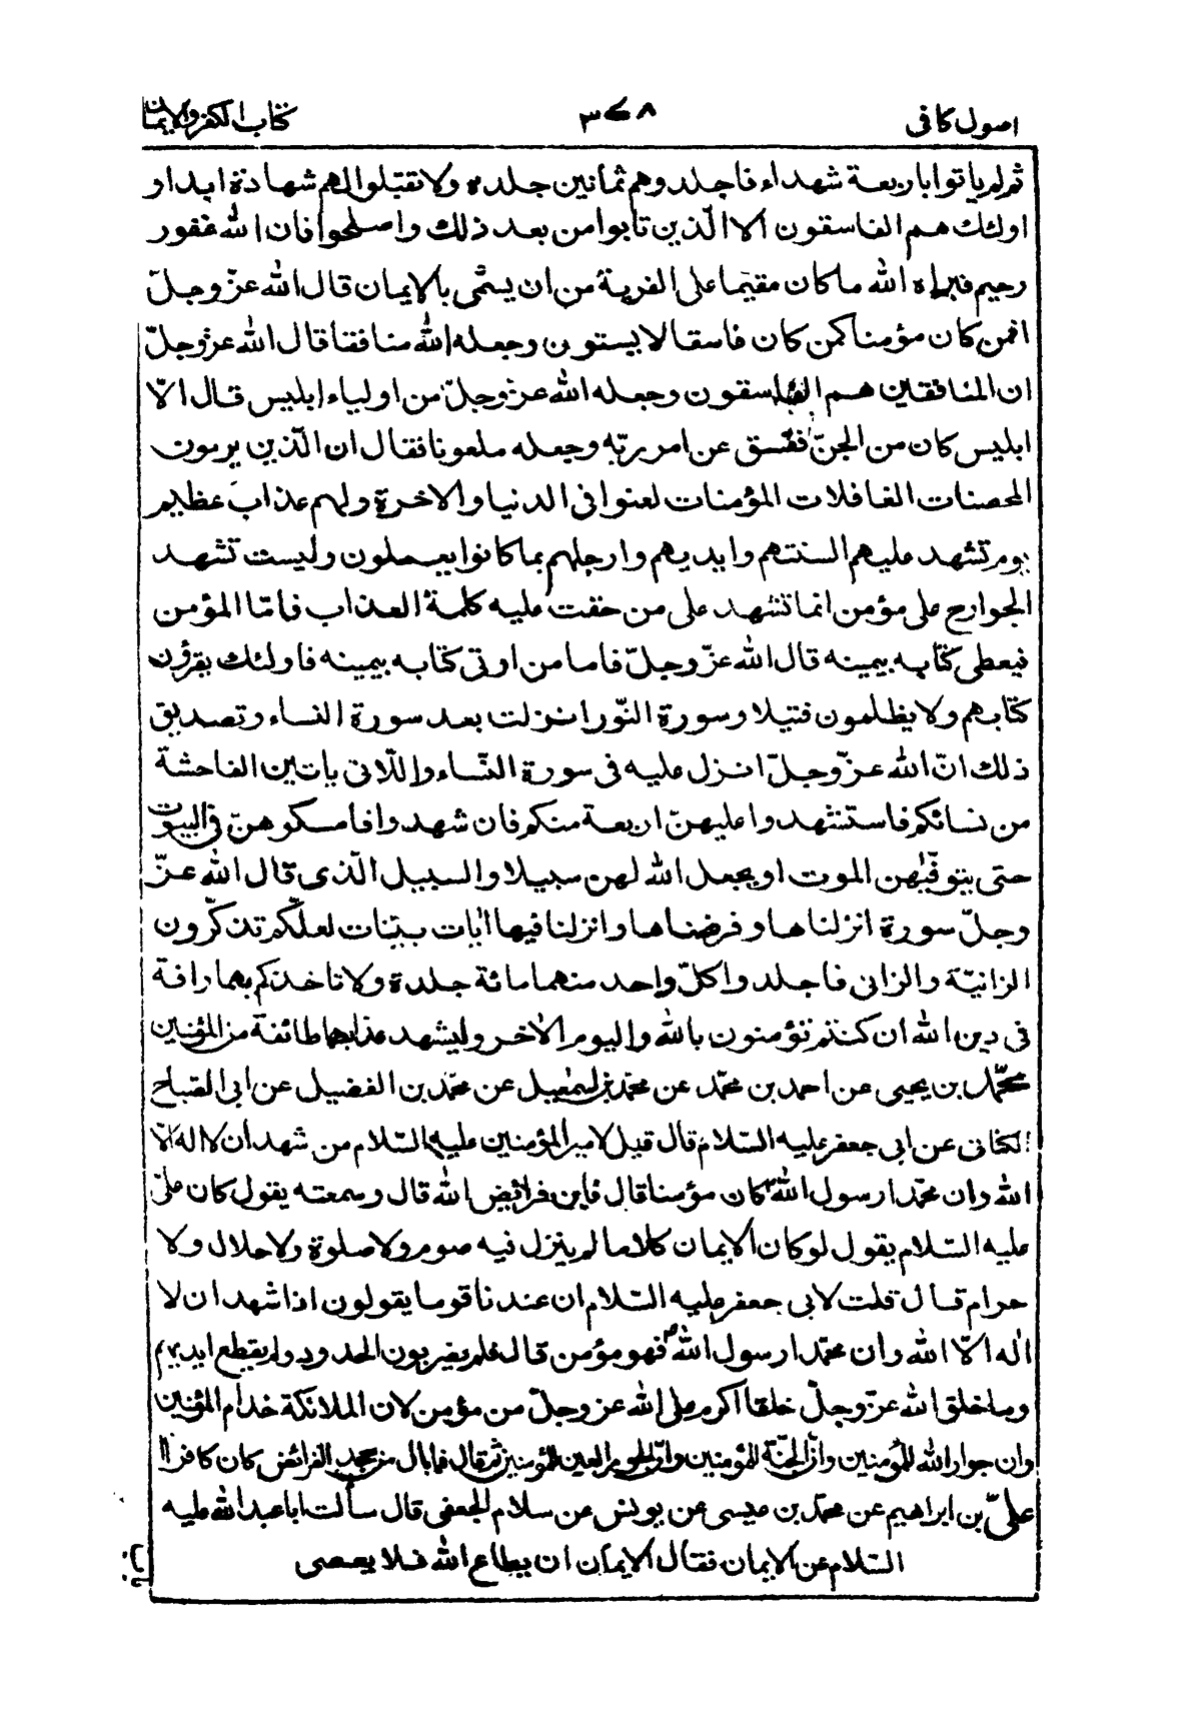 اصول كافى ٣٧٨ كتاب الكفر والايمان
ثم لم ياتوا باربعة شهداء فاجلدوهم ثمانين جلده ولا تقبلوا لهم شهادة ابدا و
اولئك هم الفاسقون الا الّذين تابوا من بعد ذلك واصلحوا فان الله غفور
رحيم فبراه الله ما كان مقيما على الفرية من ان يسمّى بالايمان قال الله عزّ وجلّ
افمن كان مؤمنا كمن كان فاسقا لا يستون وجعله الله منافقا قال الله عز وجلّ
ان المنافقين هم الفاسقون وجعله الله عز وجلّ من اولياء ابليس قال الّا
ابليس كان من الجنّ ففسق عن امر ربّه وجعله ملعونا فقال ان الّذين يرمون
المحصنات الغافلات المؤمنات لعنوا فى الدنيا والاخرة ولهم عذاب عظيم
يوم تشهد عليهم السنتهم وايديهم وارجلهم بما كانوا يعملون وليست تشهد
الجوارح على مؤمن انما تشهد على من حقت عليه كلمة العذاب فامّا المؤمن
فيعطى كتابه بيمينه قال الله عزّ وجلّ فاما من اوتى كتابه بيمينه فاولئك يقرؤن
كتابهم ولا يظلمون فتيلا وسورة النّور انزلت بعد سورة النساء وتصديق
ذلك انّ الله عزّ وجلّ انزل عليه فى سورة النّساء واللّاتى ياتين الفاحشة
من نسائكم فاستشهدوا عليهنّ اربعة منكم فان شهدوا فامسكوهنّ فى البيوت
حتى يتوفّيهن الموت او يجعل الله لهن سبيلا والسبيل الّذى قال الله عزّ
وجلّ سورة انزلناها وفرضناها وانزلنا فيها ايات بيّنات لعلّكم تذكّرون
الزانيّة والزانى فاجلدوا كلّ واحد منهما مائة جلدة ولا تاخذكم بهما رافة
فى دين الله ان كنتم تؤمنون بالله واليوم الاخر وليشهد عذابهما طائفة من المؤمنين
محمّد بن يحيى عن احمد بن محمّد عن محمد بن اسمعيل عن محمّد بن الفضيل عن ابى الصّباح
الكنانى عن ابى جعفر عليه السّلام قال قيل لامير المؤمنين عليه السّلام من شهد ان لا اله الّا
الله وان محمّدا رسول الله ص كان مؤمنا قال فاين فرائض الله قال وسمعته يقول كان علىّ
عليه السّلام يقول لو كان الايمان كلاما لم ينزل فيه صوم ولا صلوة ولا حلال ولا
حرام قال قلت لابى جعفر عليه السّلام ان عندنا قوما يقولون اذا شهد ان لا
اله الّا الله وان محمّدا رسول الله ص فهو مؤمن قال فلم يضربون الحدود ولم يقطع ايديهم
وما خلق الله عزّ وجلّ خلقا اكرم على الله عز وجلّ من مؤمن لان الملائكة خدام المؤمنين
وان جوار الله للمؤمنين وانّ الجنّة للمؤمنين وانّ الحور العين للمؤمنين ثم قال فما بال من جحد الفرائض كان كافرا
علىّ بن ابراهيم عن محمّد بن عيسى عن يونس عن سلام الجعفى قال سألت ابا عبد الله عليه
السّلام عن الايمان فقال الايمان ان يطاع الله فلا يعصى
باب